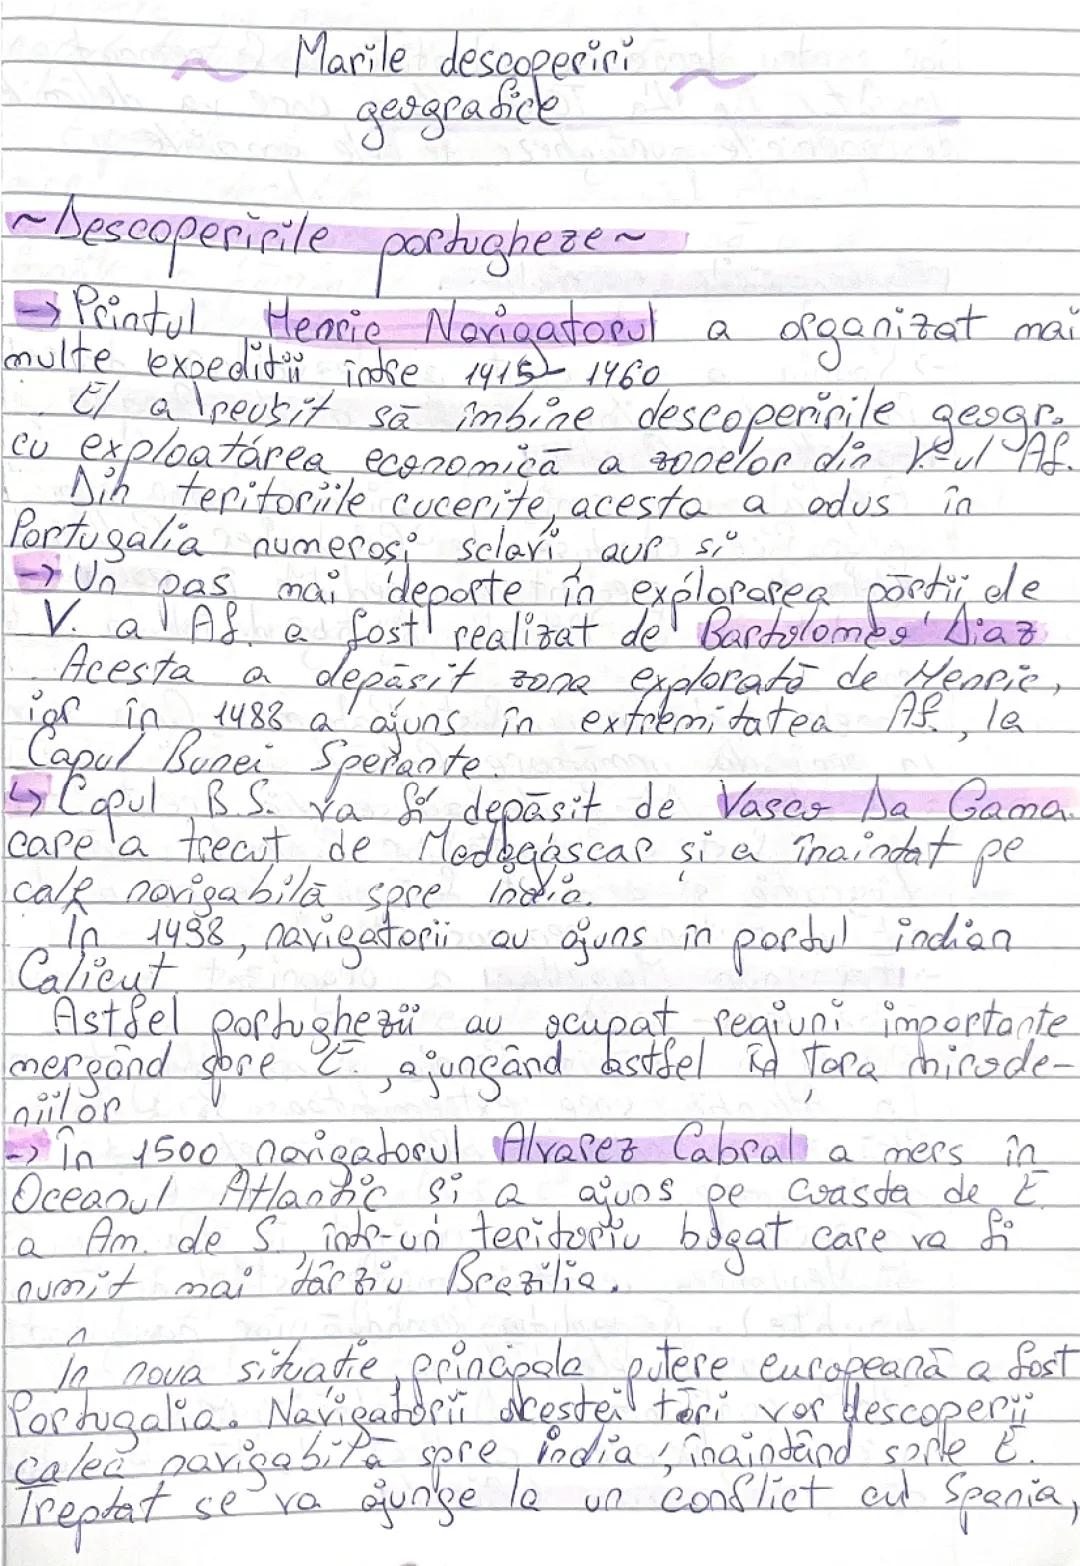 Marile descoperiri
geografice
~Descoperirile portugheze~
→ Prințul Henric Navigatorul a organizat mai
multe expediții între 1415 - 1460
El a reușit să îmbine descoperirile geogr.
cu exploatarea economică a zonelor din V-ul Af.
Din teritoriile cucerite, acesta a adus în
Portugalia numeroși sclavi, aur și
→ Un pas mai departe în explorarea părții de
V. a Af. a fost realizat de Bartolomeo Diaz
Acesta a depășit zona explorată de Henric,
iar în 1488 a ajuns în extremitatea Af., la
Capul Bunei Speranțe.
↳ Capul B.S. va fi depășit de Vasco Da Gama.
care a trecut de Madagascar și a înaintat pe
cale navigabilă spre India.
În 1498, navigatorii au ajuns în portul indian
Calicut
Astfel portughezii au ocupat regiuni importante
mergând spre E., ajungând astfel în țara mirode-
niilor
→ În 1500 navigatorul Alvarez Cabral a mers în
Oceanul Atlantic și a ajuns pe coasta de E
a Am. de S., într-un teritoriu bogat care va fi
numit mai târziu Brazilia.
În noua situație, principala putere europeană a fost
Portugalia. Navigatorii acestei țări vor descoperii
calea navigabilă spre India, înaintând spre E.
Treptat se va ajunge la un conflict cu Spania,